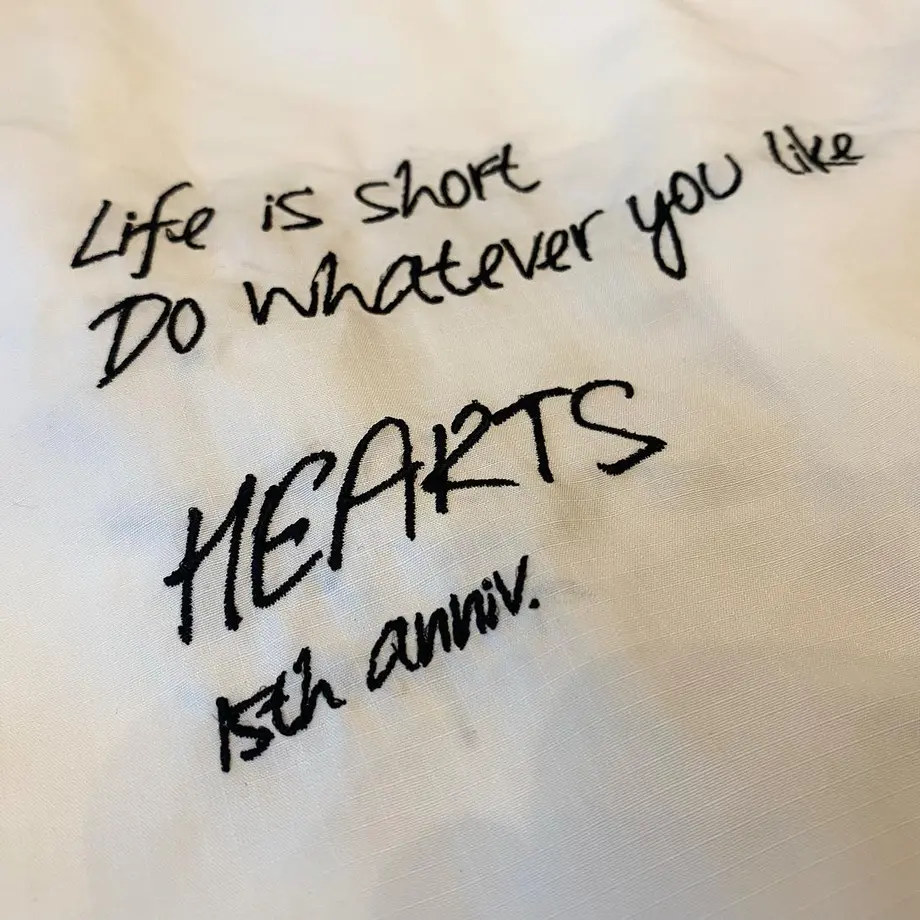 Life is short
Do whatever you like
HEARTS
15th anniv.